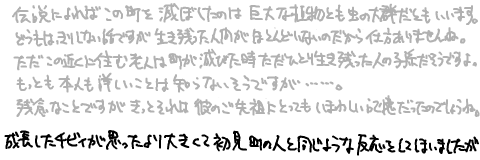 伝説によればこの町を滅ぼしたのは巨大な植物とも虫の大群だともいいます。
どうもはっきりしない話ですが生き残った人間がほとんどいないのだから仕方ありませんね。
ただこの近くに住む老人は町が滅びた時ただひとり生き残った人の子孫だそうですよ。
もっとも本人も詳しいことは知らないそうですが……。
残念なことですがきっとそれは彼のご先祖にとっても いまわしい記憶だったのでしょうね。
成長したチビィが思ったより大きくて初見町の人と同じような反応をしてしまいましたが